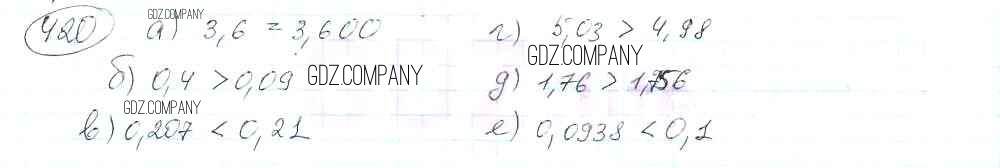 GDZ.COMPANY
420 а) 3,6 = 3,600 г) 5,03 > 4,98
GDZ.COMPANY
б) 0,4 > 0,09 GDZ.COMPANY д) 1,76 > 1,756
GDZ.COMPANY
в) 0,207 < 0,21 е) 0,0938 < 0,1